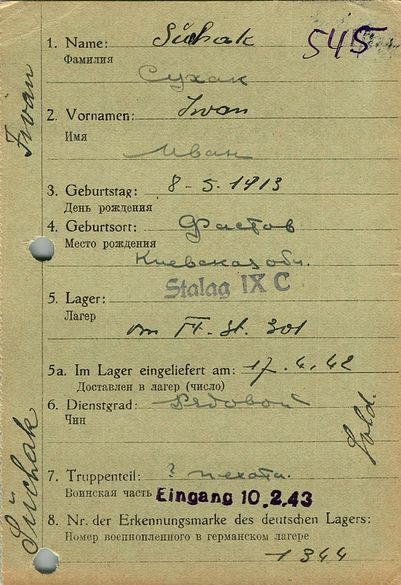 545
1. Name: Suchak
Фамилия
Сухак
2. Vornamen: Iwan
Имя
Иван
3. Geburtstag: 8-5.1913
День рождения
4. Geburtsort: Фастов
Место рождения
Киевская обл.
5. Lager: Stalag IX C
Лагер
5a. Im Lager eingeliefert am: 17.4.42
Доставлен в лагер (число)
6. Dienstgrad: Рядовой
Чин
Sold.
7. Truppenteil: ? пехота.
Воинская часть Eingang 10.2.43
8. Nr. der Erkennungsmarke des deutschen Lagers:
Номер военнопленного в германском лагере
1344
Iwan
Suchak